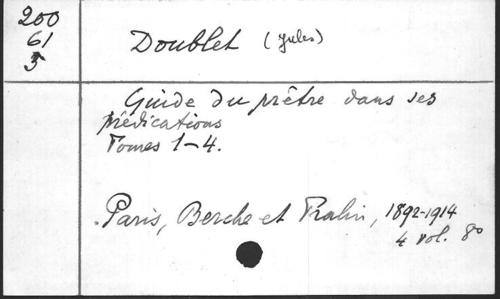 200
61
5
Doublet (Jules)
Guide du prêtre dans ses
prédications
Tomes 1-4.
Paris, Berche et Tralin, 1892-1914
4 vol. 8º